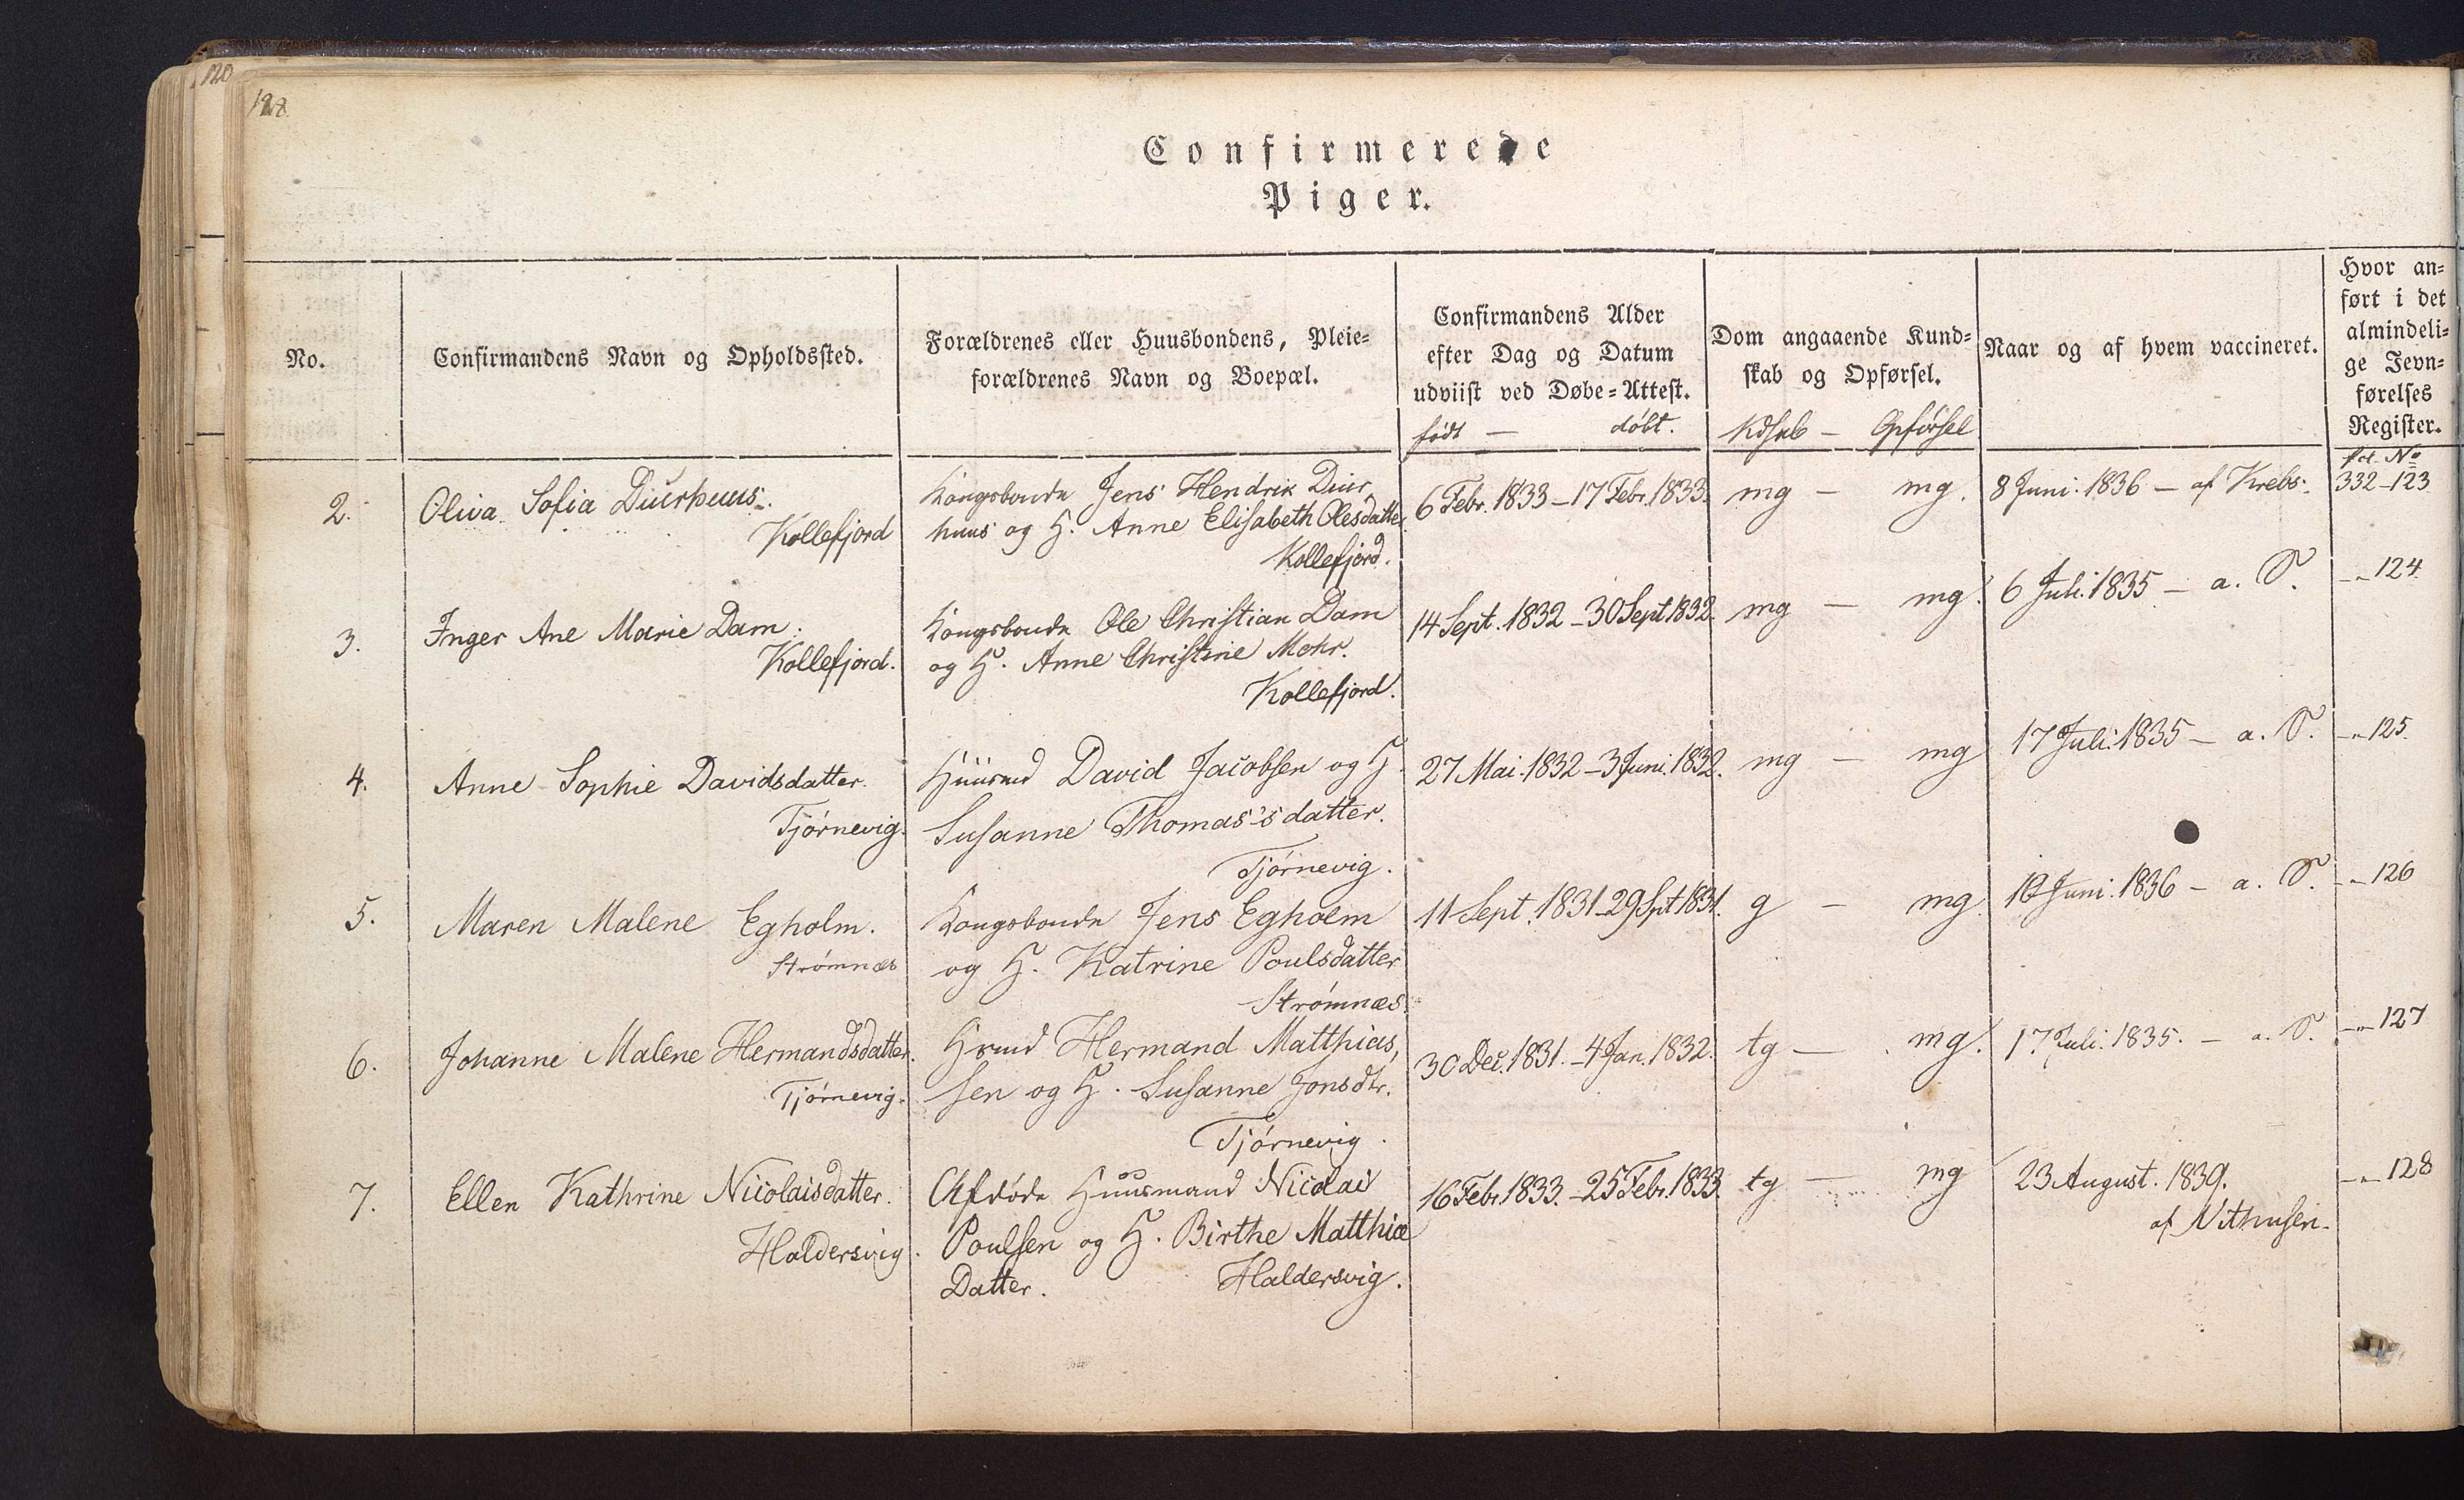 120
128
Confirmerede
Piger.
No.
Confirmandens Navn og Opholdssted.
Forældrenes eller Huusbondens, Pleie=
forældrenes Navn og Boepæl.
Confirmandens Alder
efter Dag og Datum
udviist ved Døbe=Attest.
født — døbt.
Dom angaaende Kund=
skab og Opførsel.
Kdskb — Opførsel
Naar og af hvem vaccineret.
Hvor an=
ført i det
almindeli=
ge Jevn=
førelses
Register.
fol. No
2. Oliva Sofia Diurhuus.
Kollefjord
Kongsbonde Jens Hendrik Diur
huus og H. Anne Elisabeth Olesdatter
Kollefjord.
6 Febr. 1833 – 17 Febr. 1833.
mg — mg.
8 Juni. 1836 — af Krebs.
332–123
3. Inger Ane Marie Dam.
Kollefjord.
Kongsbonde Ole Christian Dam
og H. Anne Christine Mohr.
Kollefjord.
14 Sept. 1832 – 30 Sept 1832.
mg — mg.
6 Juli. 1835 — a. S.
– „ 124
4. Anne Sophie Davidsdatter.
Tjörnevig.
Huusmd David Jacobsen og H.
Susanne Thomas's datter.
Tjörnevig.
27 Mai. 1832 – 3 Juni. 1832.
mg — mg
17 Juli. 1835 — a. S.
– „ 125.
5. Maren Malene Egholm.
Strömnæs
Kongsbonde Jens Egholm
og H. Katrine Poulsdatter
Strömnæs.
11 Sept. 1831 – 29 Spt 1831.
g — mg.
Juni. 1836 — a. S.
– „ 126
6. Johanne Malene Hermandsdatter.
Tjörnevig.
Hsmd Hermand Matthias,
sen og H. Susanne Jonsdtr.
Tjörnevig.
30 Dec. 1831. – 4 Jan. 1832.
tg — mg.
17 Juli. 1835. — a. S.
– „ 127
7. Ellen Kathrine Nicolaisdatter.
Haldersvig.
Afdöde Huusmand Nicolai
Poulsen og H. Birthe Matthiæ
Datter. Haldersvig.
16 Febr. 1833. – 25 Febr. 1833.
tg — mg
23 August. 1839.
af
– „ 128